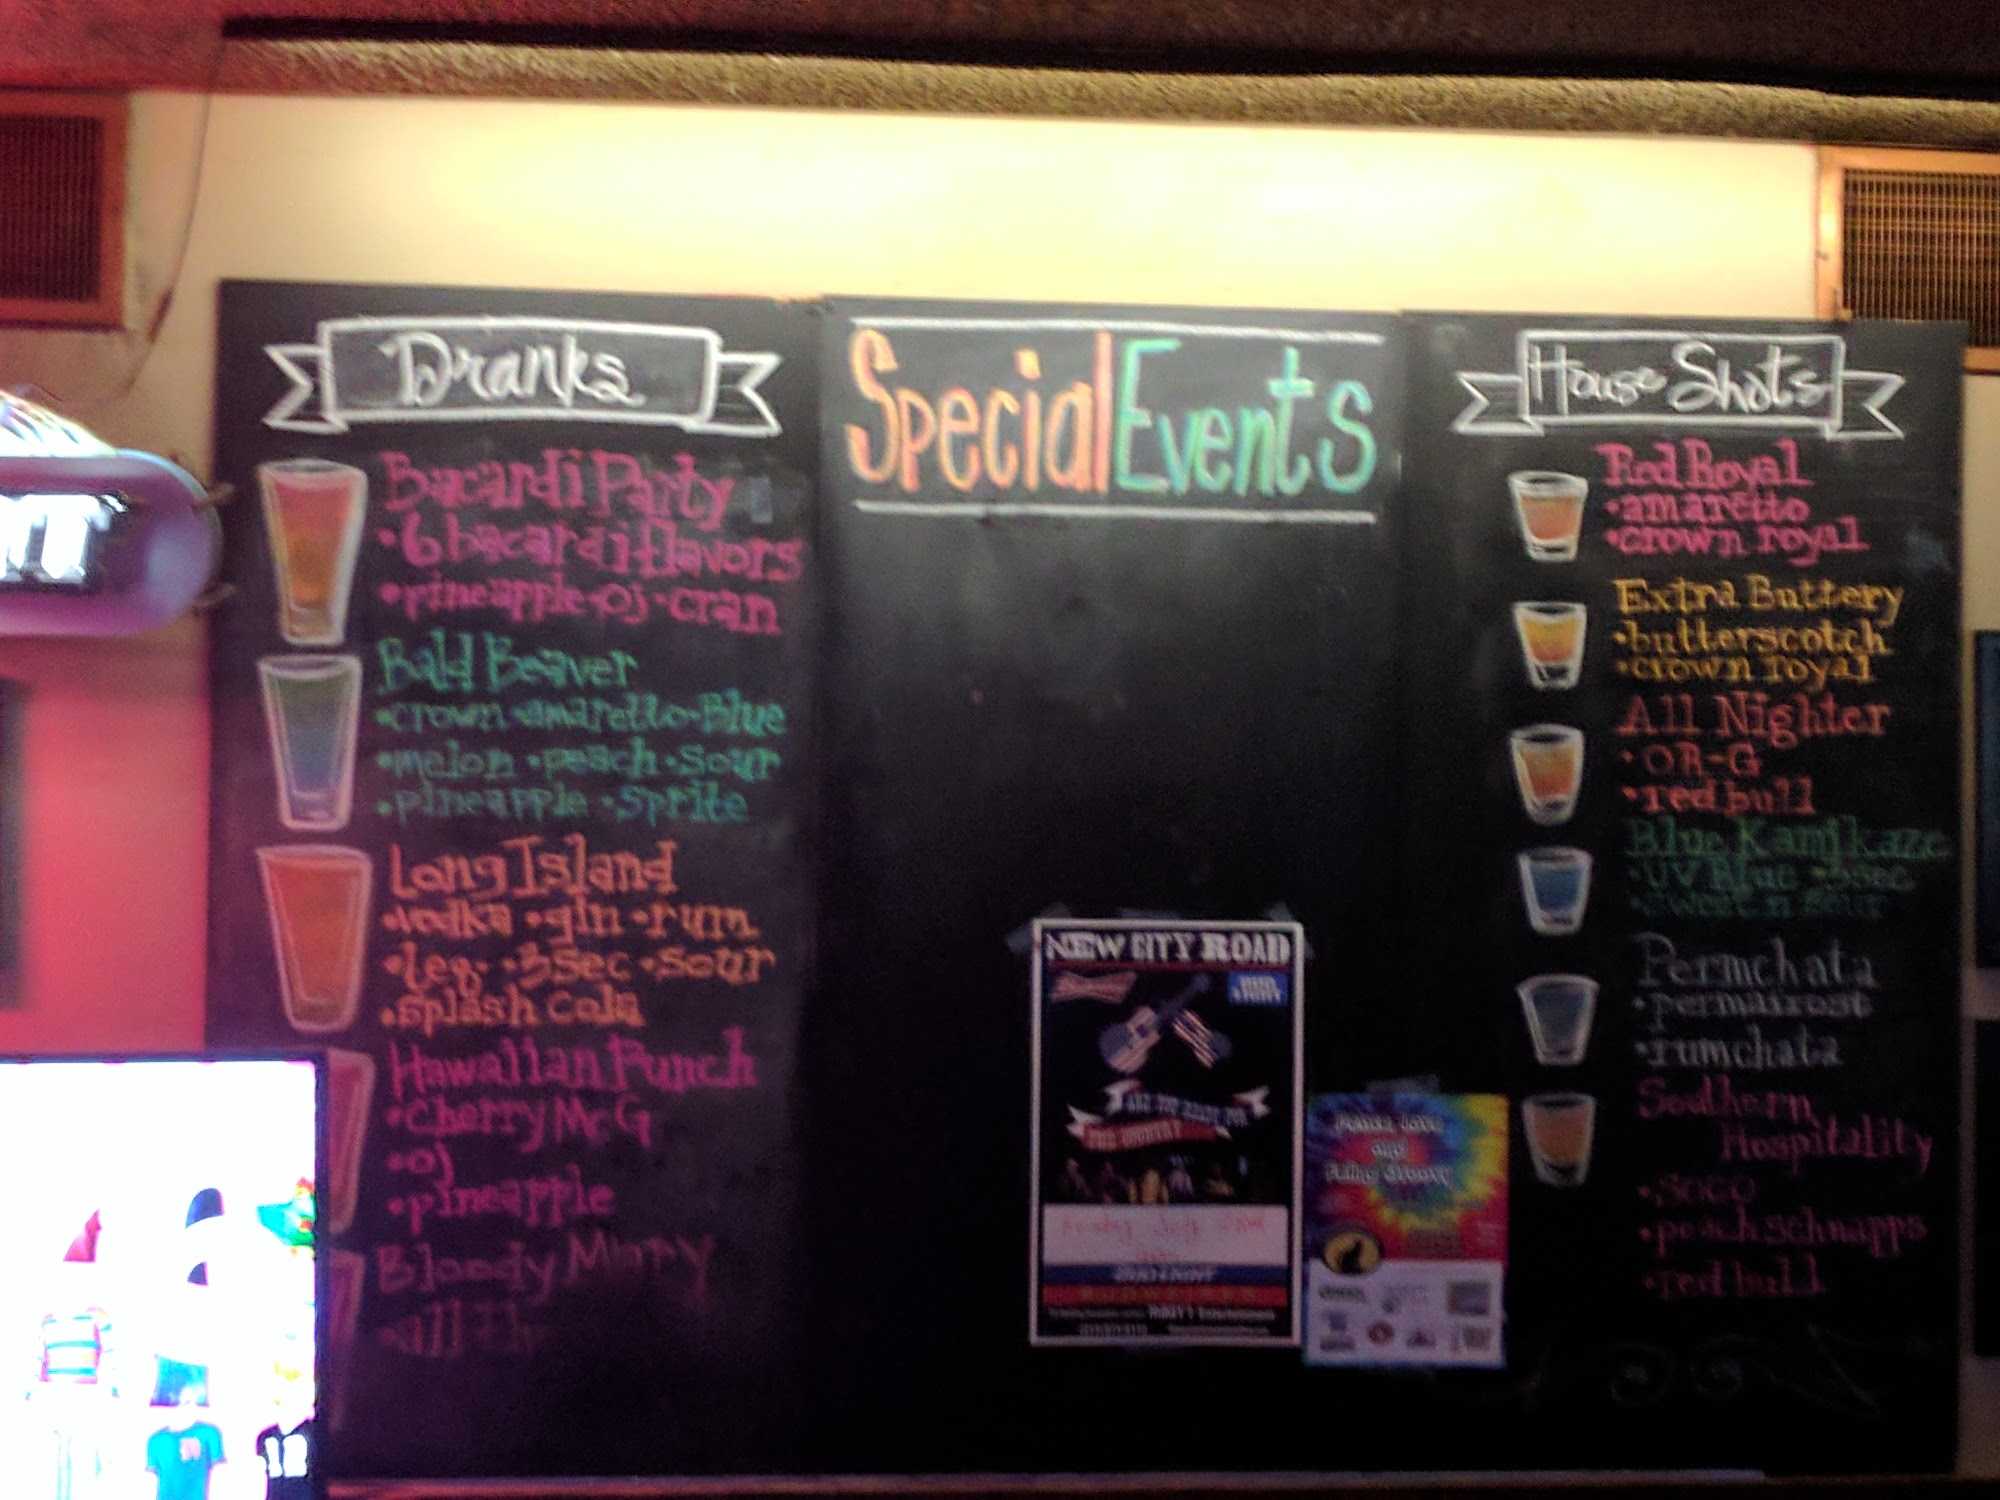 Dranks
Bacardi Party
•6 bacardi flavors
•pineapple•oj•cran
Bald Beaver
•crown•amaretto•Blue
•melon •peach •sour
•pineapple •sprite
Long Island
•vodka •gin •rum
•teq. •3sec •sour
•splash cola
Hawaiian Punch
•Cherry McG
•oj
•pineapple
Bloody Mary
•all the
Special Events
NEW CITY ROAD
BUD LIGHT
ARE YOU READY FOR
THIS COUNTRY
Friday July
BUD LIGHT
BUDWEISER
Peace, Love
and
Feling Groovy
House Shots
Red Royal
•amaretto
•crown royal
Extra Buttery
•butterscotch
•crown royal
All Nighter
•OR-G
•redbull
Blue Kamikaze
•UV Blue •3sec
•sweet n sour
Permchata
•permafrost
•rumchata
Southern
Hospitality
•SOCO
•peach schnapps
•redbull